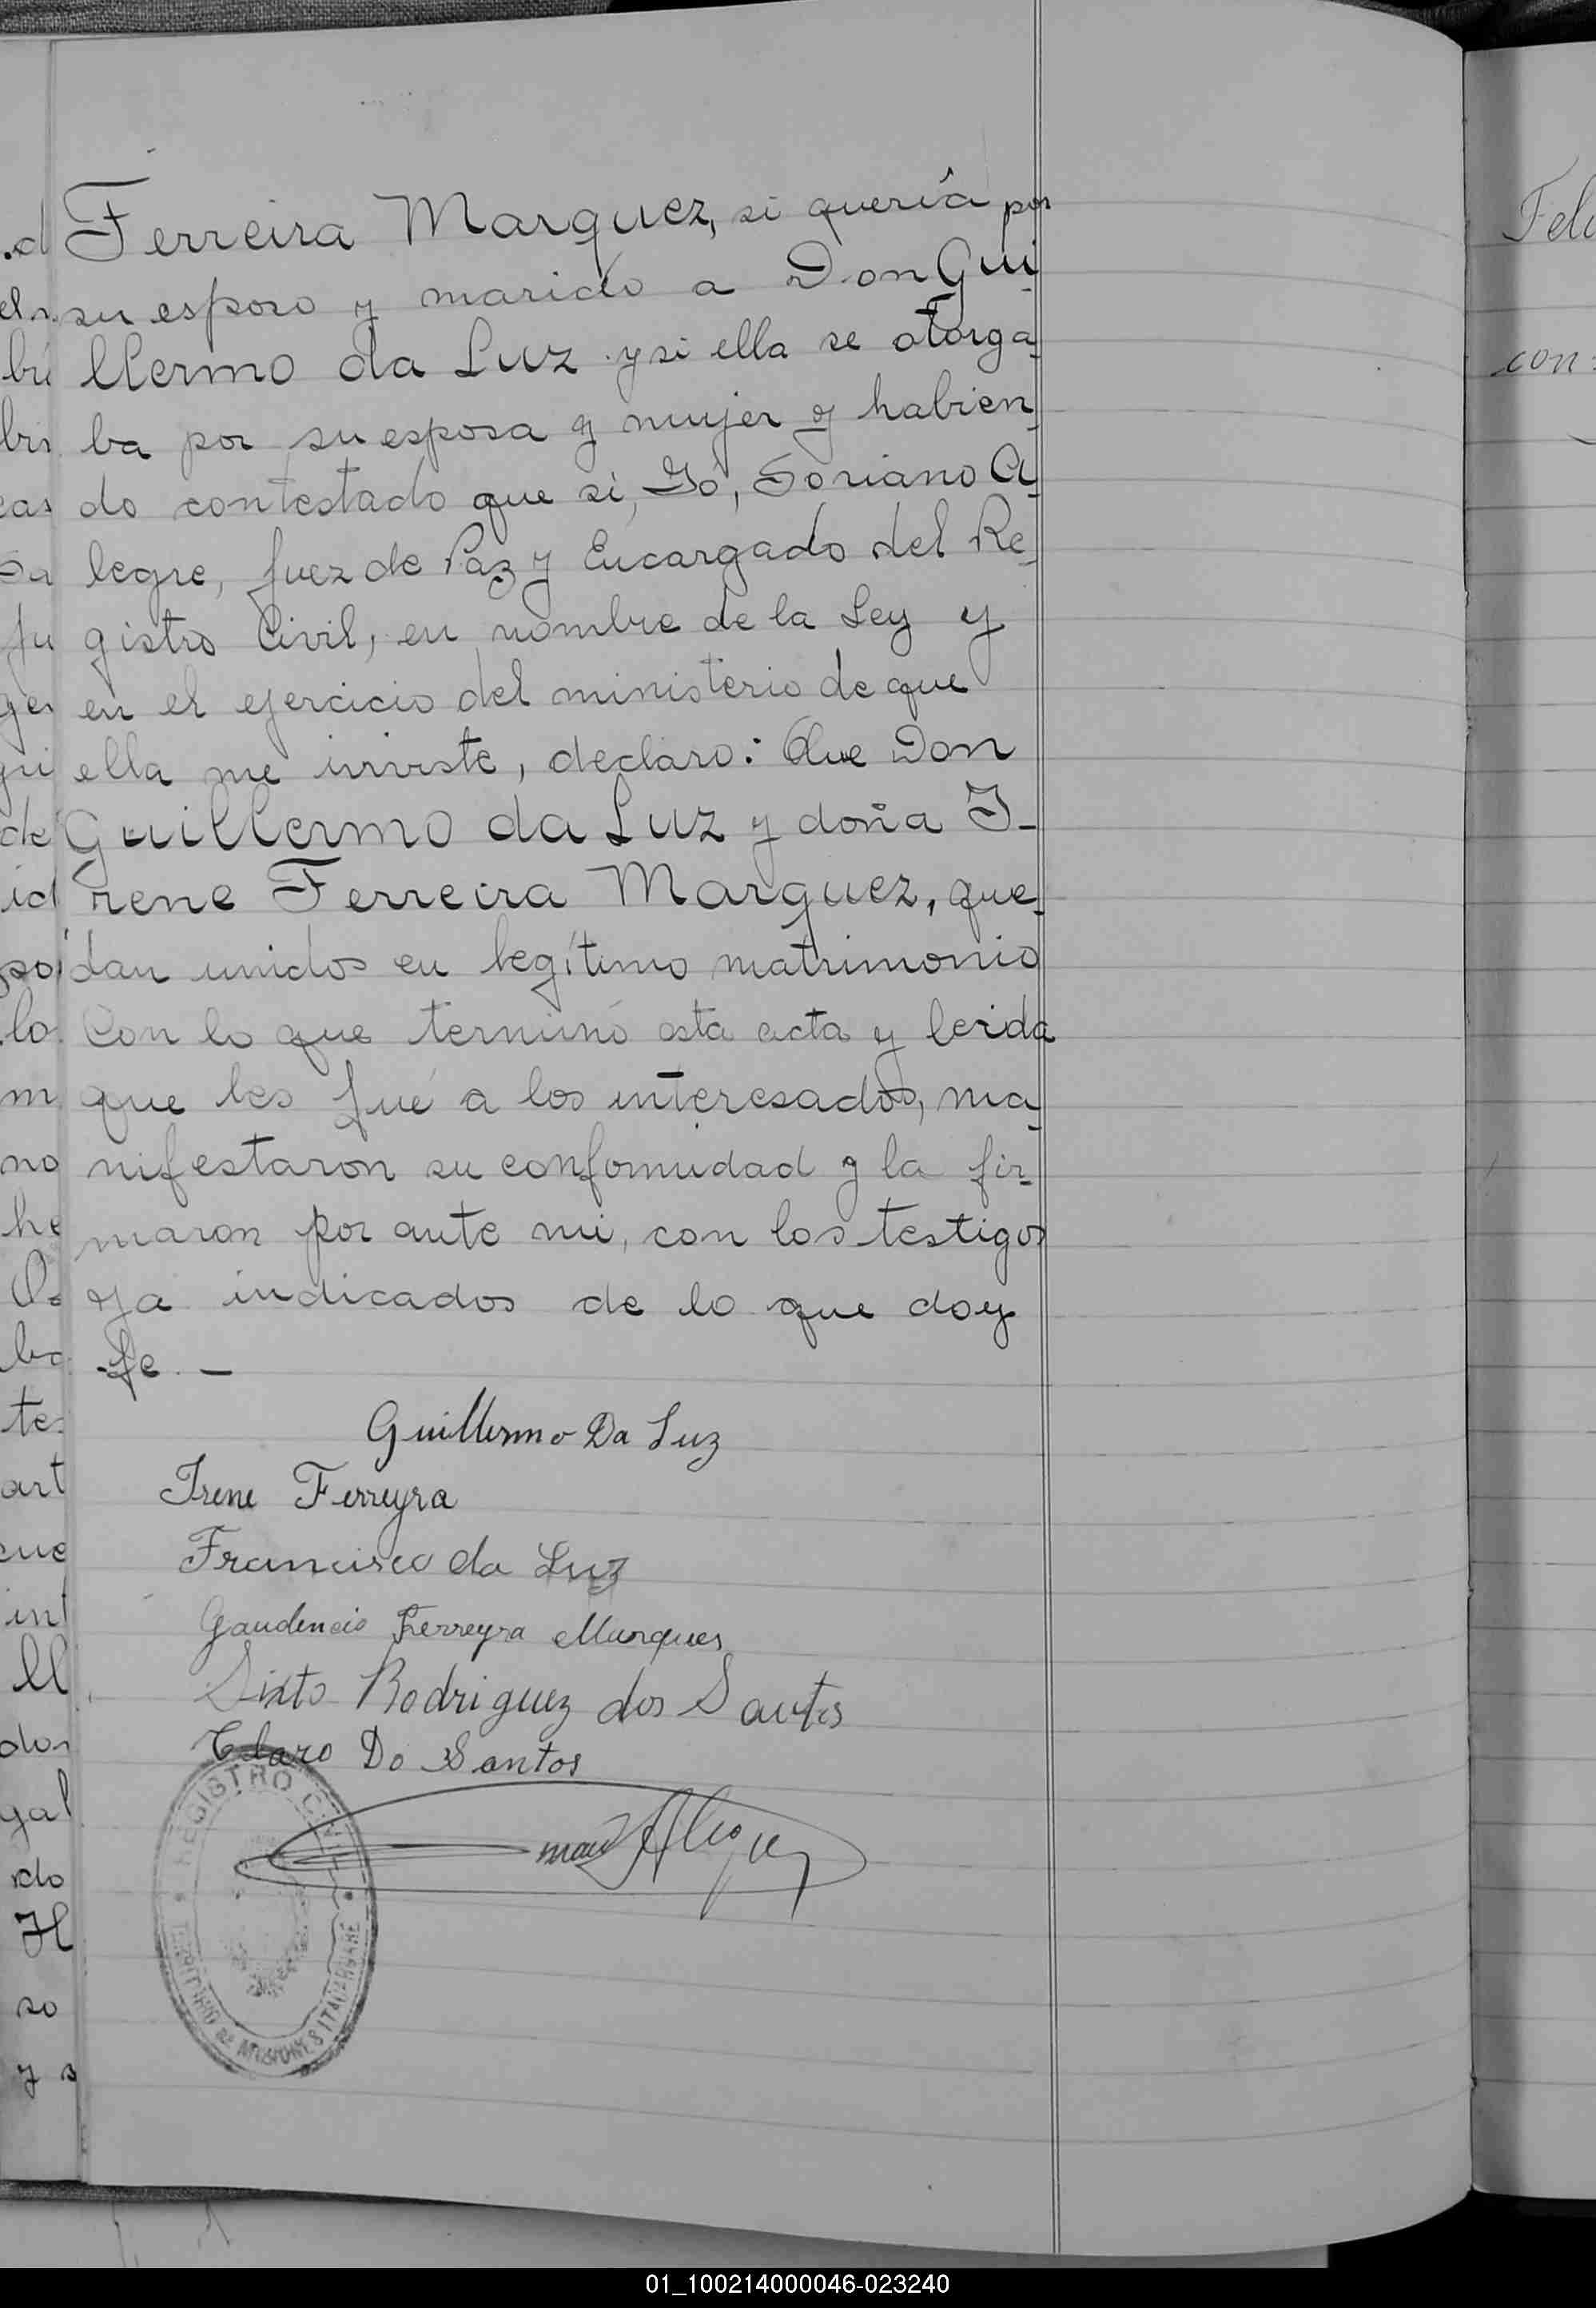 Ferreira Marquez, si quería por
su esposo y marido a Don Gui
llermo da Luz y si ella se otorga
ba por su esposa y mujer y habien
do contestado que si, Yó, Soriano A
legre, Juez de Paz y Encargado del Re
gistro Civil, en nombre de la Ley y
en el ejercicio del ministerio de que
ella me inviste, declaro: Que Don
Guillermo da Luz y doña I-
rene Ferreira Marquez, que
dan unidos en legítimo matrimonio
Con lo que terminó esta acta y leida
que les fué a los interesados, ma
nifestaron su conformidad y la fir-
maron por ante mi, con los testigos
ya indicados de lo que doy
fe. —
Guillermo Da Luz
Irene Ferreyra
Francisco da Luz
Gaudencio Ferreyra Marques
Sixto Rodriguez dos Santos
Claro Do Santos
Alegre
REGISTRO CIVIL
TERRITORIO DE MISIONES ITACARUARE
Fel
con
01_100214000046-023240